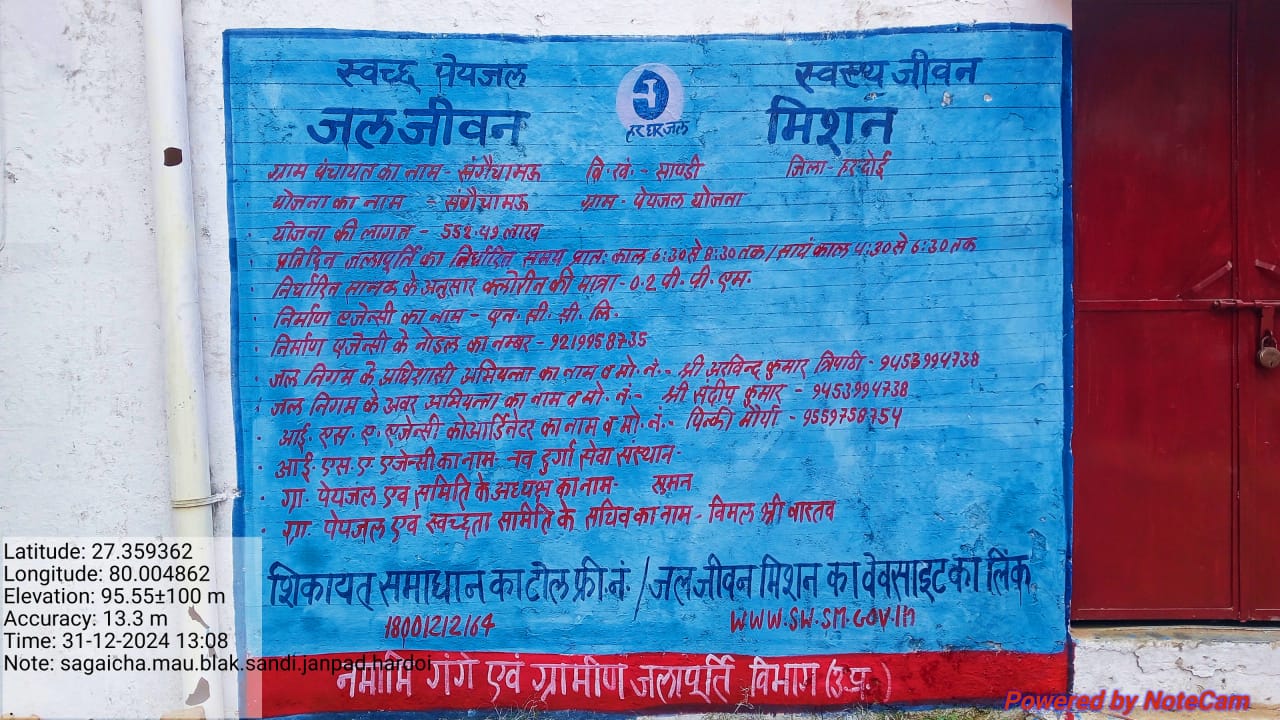 स्वच्छ पेयजल स्वस्थ्य जीवन
जल जीवन मिशन
हर घर जल
ग्राम पंचायत का नाम - संगैचामऊ वि.खं. - साण्डी जिला - हरदोई
योजना का नाम - संगैचामऊ ग्राम - पेयजल योजना
योजना की लागत - 552.49 लाख
प्रतिदिन जलापूर्ति का निर्धारित समय प्रात: काल 6:30 से 8:30 तक / सायं काल 4:30 से 6:30 तक
निर्धारित मानक के अनुसार क्लोरीन की मात्रा - 0.2 पी. पी. एम.
निर्माण एजेन्सी का नाम - एन. सी. सी. लि.
निर्माण एजेन्सी के नोडल का नम्बर - 9219958735
जल निगम के अधिशासी अभियन्ता का नाम व मो. नं. - श्री अरविन्द कुमार त्रिपाठी - 9453994738
जल निगम के अवर अभियन्ता का नाम व मो. नं. - श्री संदीप कुमार - 9453994738
आई. एस. ए. एजेन्सी कोआर्डिनेटर का नाम व मो. नं. - पिन्की मौर्या - 9559758754
आई. एस. ए. एजेन्सी का नाम - नव दुर्गा सेवा संस्थान -
ग्रा. पेयजल एव समिति के अध्यक्ष का नाम - सुमन
ग्रा. पेयजल एव स्वच्छता समिति के सचिव का नाम - विमल श्री वास्तव
शिकायत समाधान का टोल फ्री. नं. / जल जीवन मिशन का वेवसाइट का लिंक
18001212164 WWW.SW.SM.GOV.In
नमामि गंगे एवं ग्रामीण जलापूर्ति विभाग (उ.प्र.)
Latitude: 27.359362
Longitude: 80.004862
Elevation: 95.55±100 m
Accuracy: 13.3 m
Time: 31-12-2024 13:08
Note: sagaicha.mau.blak.sandi.janpad.hardoi
Powered by NoteCam